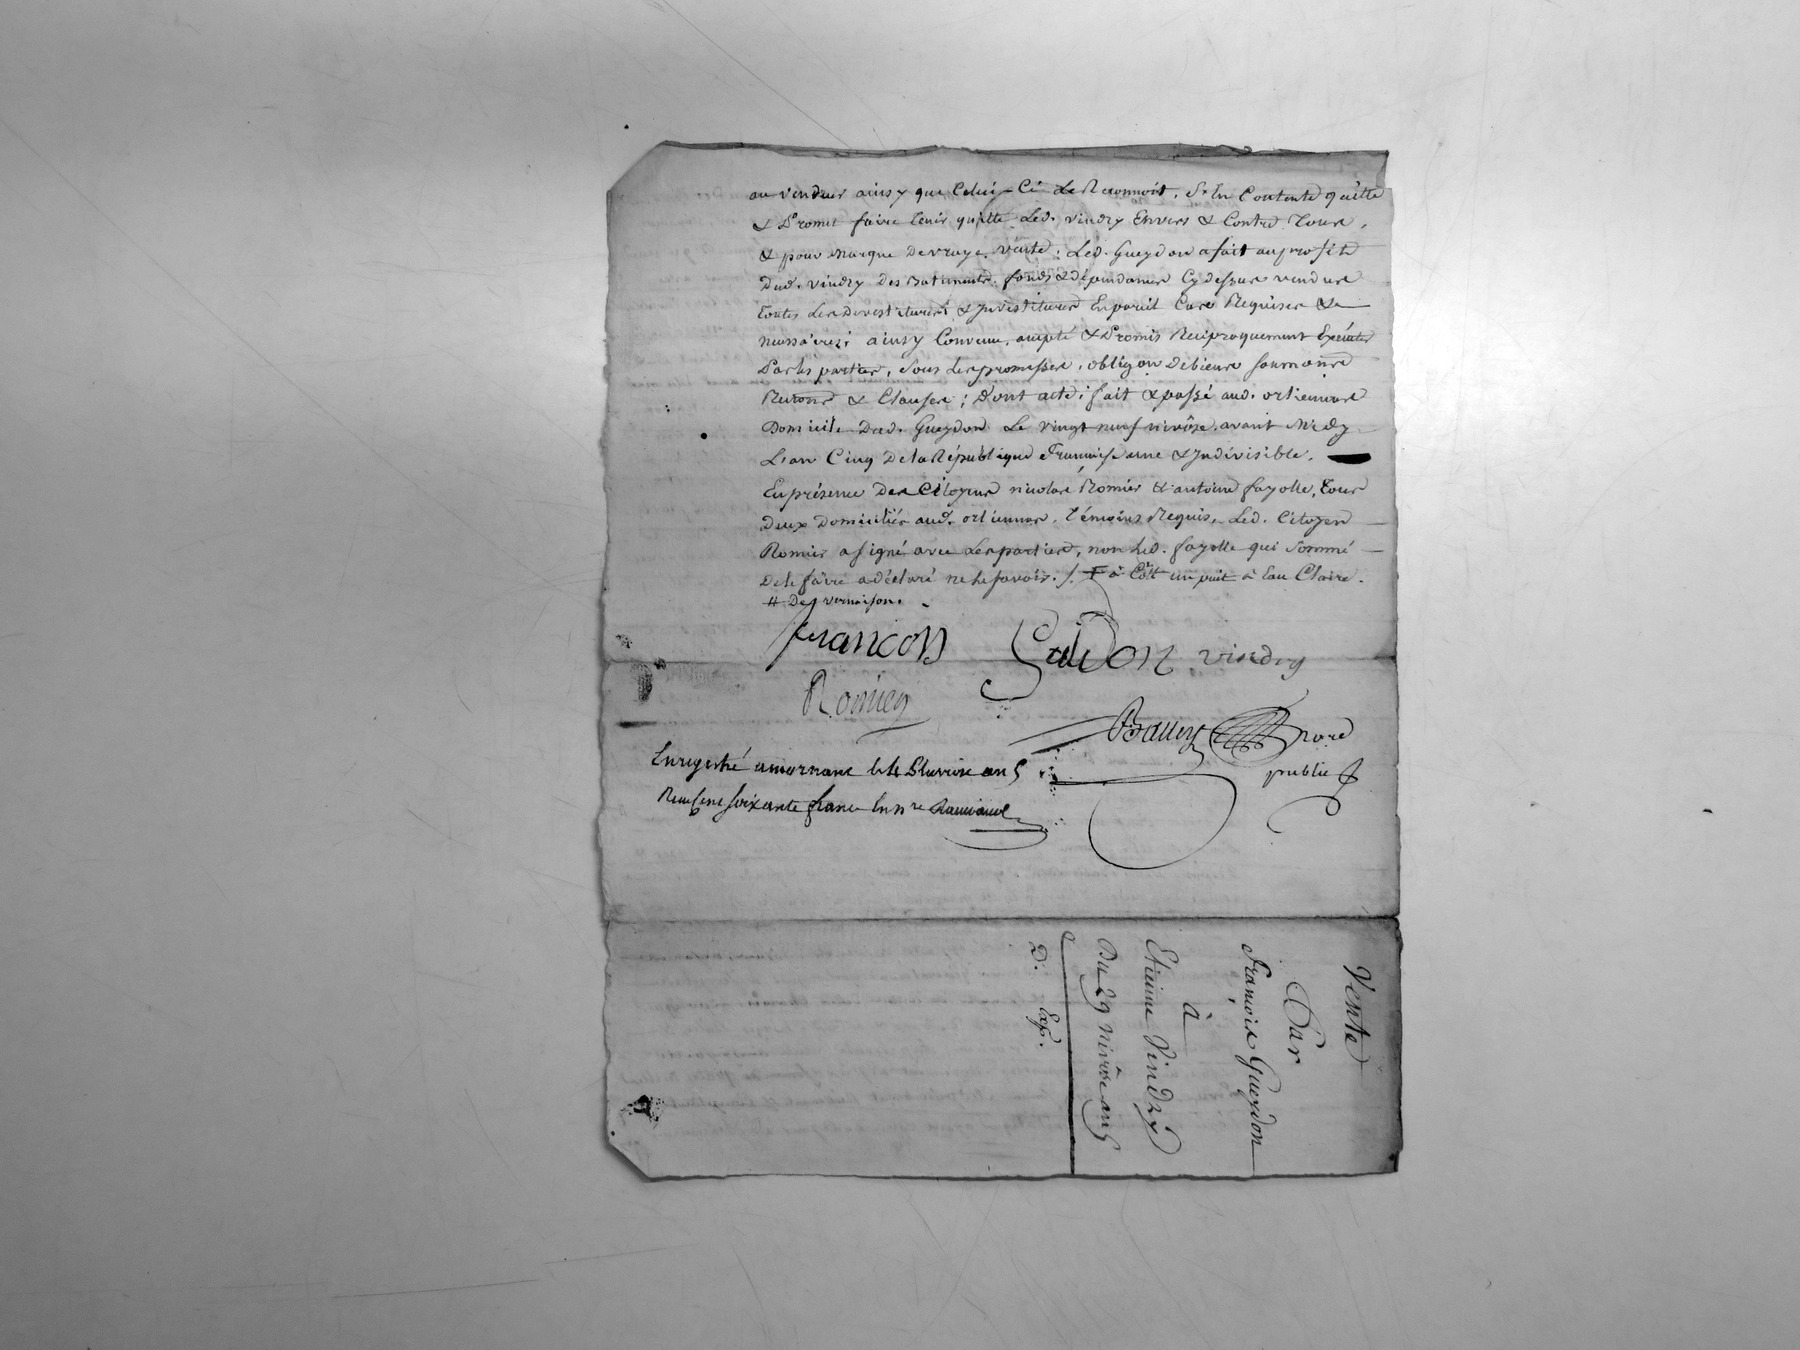 au vendeur ainsy que Celui-Ci Le Reconnoit, S'en Contente quitte
& Promet faire tenir quitte Led. vindry Envers & Contre Tous,
& pour marque de vraye vente; Led. Gueydon a fait au profit
Dud. vindry des Batiments, fonds & dépendances Cy dessus vendus
toutes Les Devestitures & Investitures En pareil Cas Requises &
nessaires; ainsy Convenu, accepté & Promis Reciproquement Exécuter
Par les parties, sous Les promesses, obligon de biens soumons
Renons & Clauses; Dont acte; fait & passé aud. orliennas
Domicile Dud. Gueydon Le vingt neuf nivôse avant Midy
L'an Cinq De la République Françoise une & Indivisible.
En présence Des Citoyens nicolas Romier & antoine fayolle, Tous
deux Domiciliés aud. orliennas, témoins Requis, Led. Citoyen
Romier a signé avec Les parties, non Led. fayolle qui sommé
de le faire a déclaré ne le savoir ./. à Côté un puit à Eau Claire.
# De vernaison.
francois Gueidon vindry
Romier
nore
public
Enregistré a mornant le 14 Pluviose an 5
Reçu Cent soixante francs
Vente
Par
François Gueydon
à
Etienne Vindry
Du 29 Nivôse an 5
D. Exp.